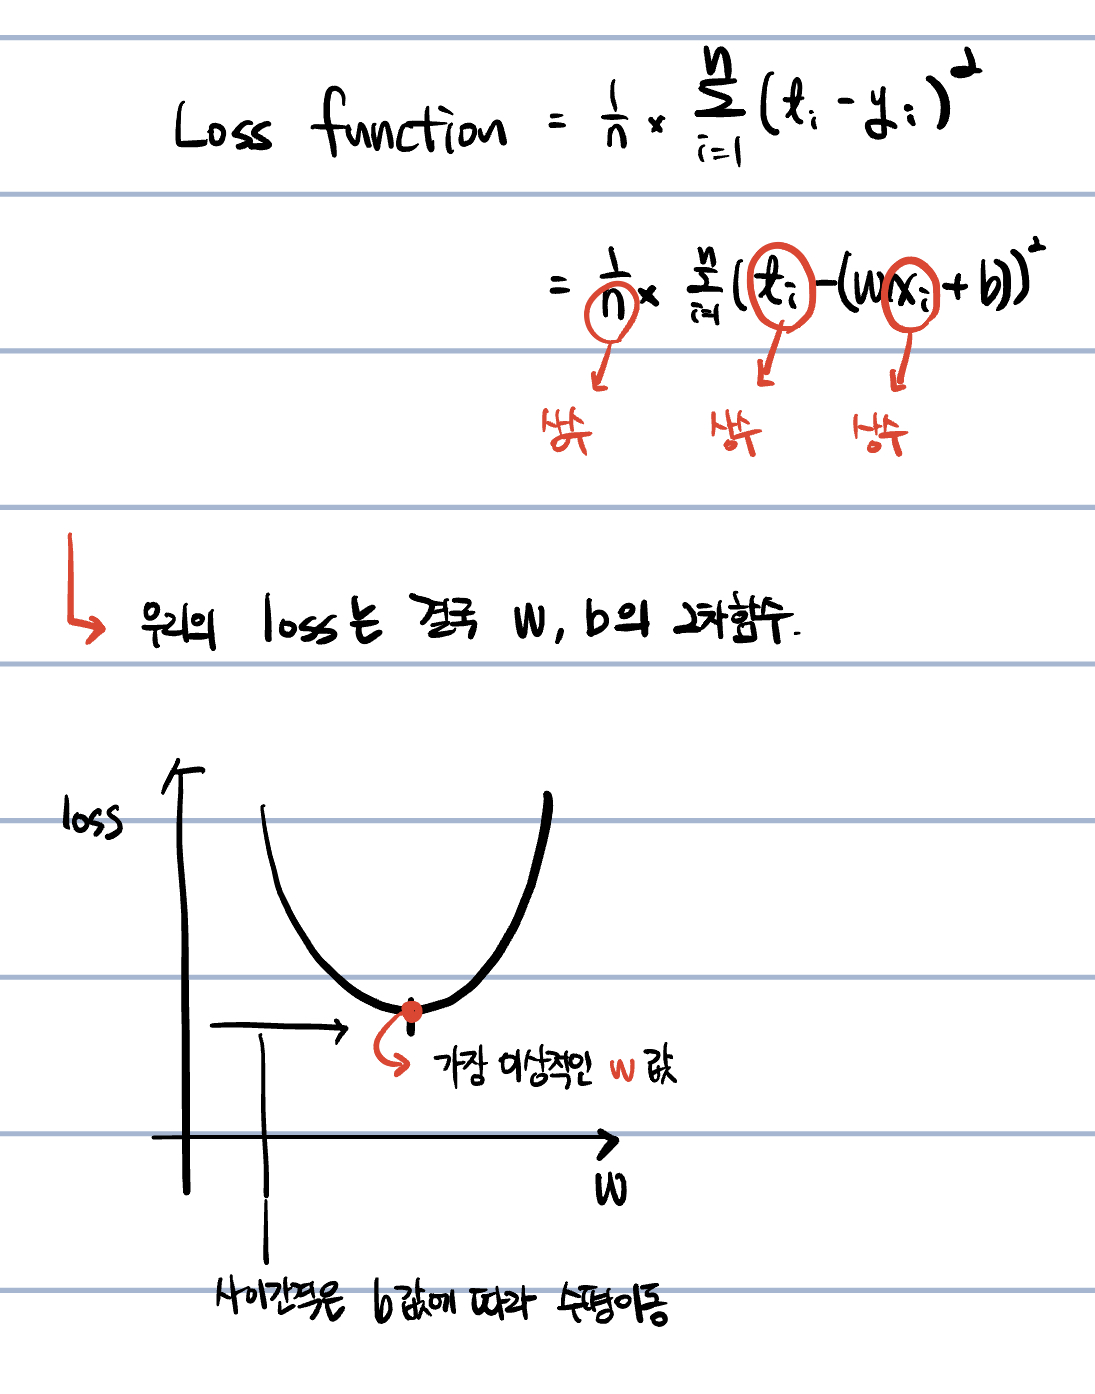 Loss function = 1/n × Σ_{i=1}^{n} (t_i - y_i)^2
= 1/n × Σ_{i=1}^{n} (t_i - (wx_i + b))^2
상수 상수 상수
우리의 loss는 결국 w, b의 2차함수.
loss
가장 이상적인 w 값
w
사이간격은 b값에 따라 수평이동